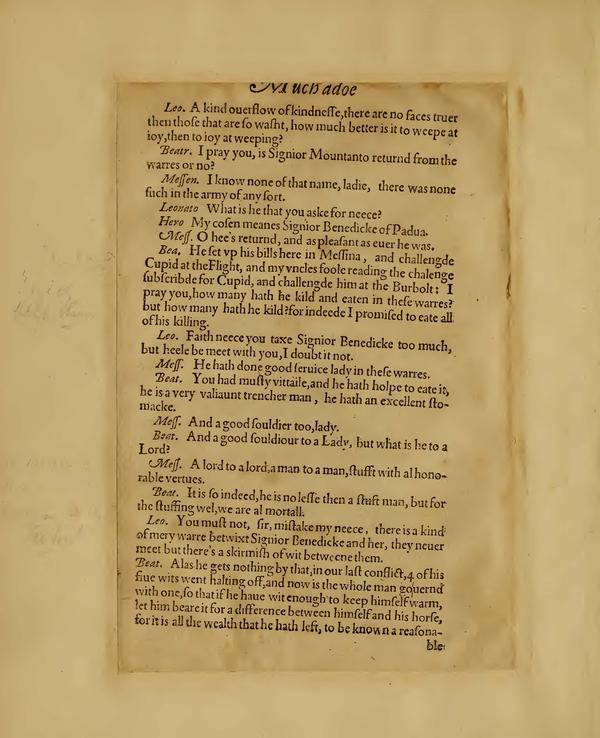 Much adoe
Leo. A kind ouerflow of kindneſſe,there are no faces truer
then thoſe that are ſo waſht, how much better is it to weepe at
ioy,then to ioy at weeping?
Beatr. I pray you, is Signior Mountanto returnd from the
warres or no?
Meſſen. I know none of that name, ladie, there was none
ſuch in the army of any ſort.
Leonato What is he that you aske for neece?
Hero My coſen meanes Signior Benedicke of Padua.
Meſſ. O hee's returnd, and as pleaſant as euer he was.
Bea. He ſet vp his bills here in Meſſina, and challengde
Cupid at the Flight, and my vncles foole reading the chalenge
ſubſcribde for Cupid, and challengde him at the Burbolt: I
pray you,how many hath he kild and eaten in theſe warres?
but how many hath he kild?for indeede I promiſed to eate all
of his killing.
Leo. Faith neece you taxe Signior Benedicke too much,
but heele be meet with you,I doubt it not.
Meſſ. He hath done good ſeruice lady in theſe warres.
Beat. You had muſty vittaile,and he hath holpe to eate it,
he is a very valiaunt trencher man, he hath an excellent ſto-
macke.
Meſſ. And a good ſouldier too,lady.
Beat. And a good ſouldiour to a Lady, but what is he to a
Lord?
Meſſ. A lord to a lord,a man to a man,ſtufft with al hono-
rable vertues.
Beat. It is ſo indeed,he is no leſſe then a ſtuft man, but for
the ſtuffing wel,we are al mortall.
Leo. You muſt not, ſir, miſtake my neece, there is a kind
of mery warre betwixt Signior Benedicke and her, they neuer
meet but there's a skirmiſh of wit betweene them.
Beat. Alas he gets nothing by that,in our laſt conflict,4.of his
fiue wits went halting off,and now is the whole man gouernd
with one,ſo that if he haue wit enough to keep himſelf warm,
let him beare it for a difference between himſelf and his horſe,
for it is all the wealth that he hath left, to be known a reaſona-
ble